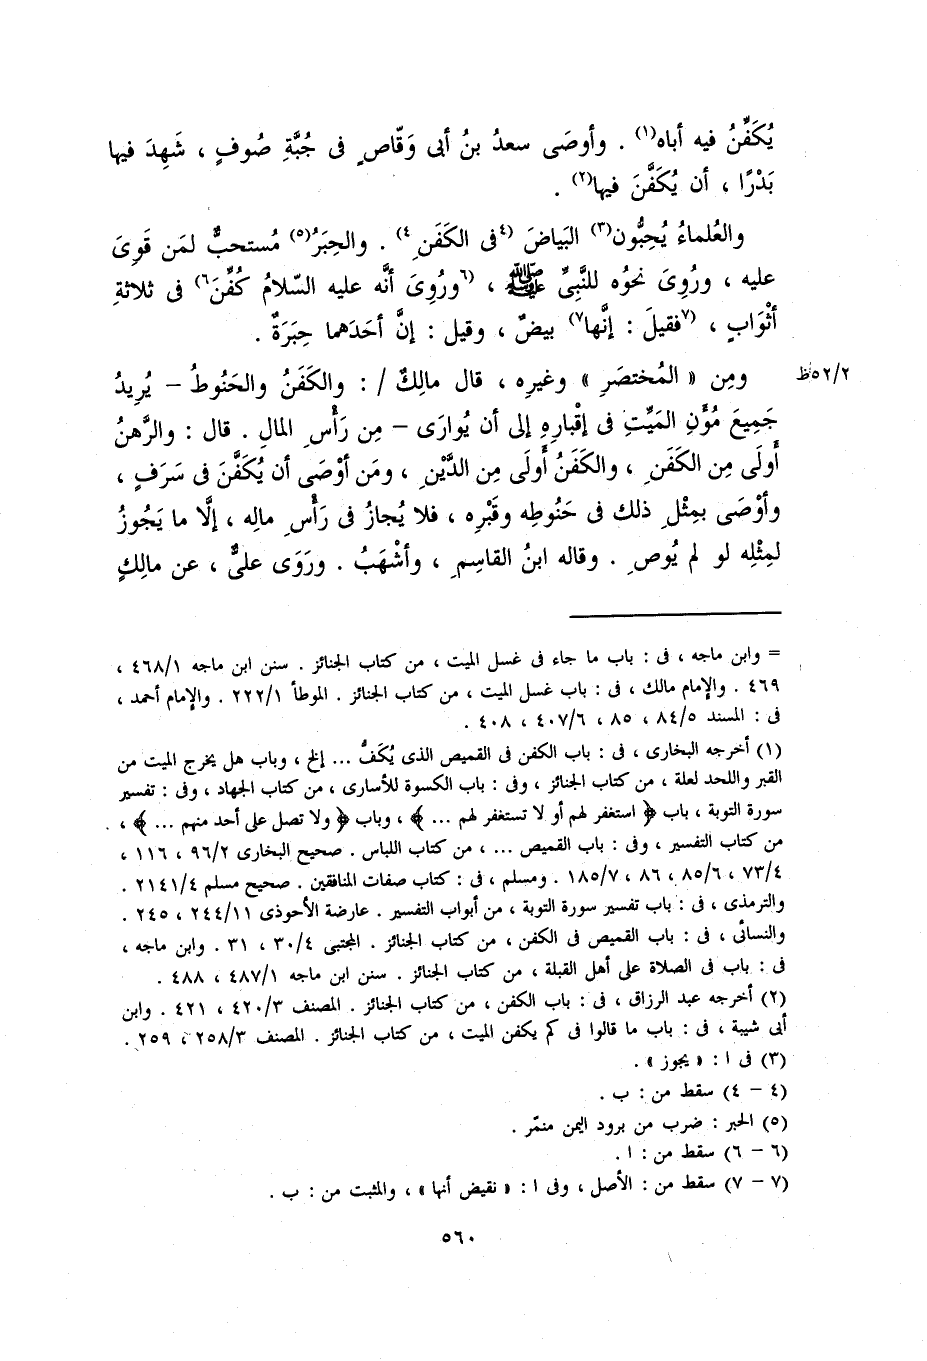 يُكَفِّنُ فيه أباه(١) . وأوصَى سعدُ بنُ أبى وَقّاصٍ فى جُبَّةِ صُوفٍ ، شَهِدَ فيها
بَدْرًا ، أن يُكَفَّنَ فيها(٢) .
والعُلماءُ يُحِبُّون(٣) البَياضَ (٤فى الكَفَنِ٤) . والحِبَرُ(٥) مُستحبٌّ لمَن قَوِىَ
عليه ، ورُوِىَ نحوُه للنَّبِىِّ ﷺ ، (٦ورُوِىَ أنَّه عليه السّلامُ كُفِّنَ٦) فى ثلاثةِ
أثْوَابٍ ، (٧فقيلَ : إنَّها٧) بيضٌ ، وقيل : إنَّ أحَدَهما حِبَرَةٌ .
٥٢/٢ظ ومِن « المُختصَرِ » وغيرِه ، قال مالِكٌ / : والكَفَنُ والحَنُوطُ – يُرِيدُ
جَمِيعَ مُؤَنِ المَيِّتِ فى إقْبارِهِ إلى أن يُوارَى – مِن رَأْسِ المَالِ . قال : والرَّهنُ
أَولَى مِن الكَفَنِ ، والكَفَنُ أَولَى مِن الدَّيْنِ ، ومَن أوْصَى أن يُكَفَّنَ فى سَرَفٍ ،
وأوْصَى بمِثْلِ ذلك فى حَنُوطِه وقَبْرِه ، فلا يُجازُ فى رَأْسِ مالِه ، إلَّا ما يَجُوزُ
لمِثْلِه لو لم يُوصِ . وقاله ابنُ القاسِمِ ، وأشْهَبُ . ورَوَى علىٌّ ، عن مالِكٍ
= وابن ماجه ، فى : باب ما جاء فى غسل الميت ، من كتاب الجنائز . سنن ابن ماجه ٤٦٨/١ ،
٤٦٩ . والإمام مالك ، فى : باب غسل الميت ، من كتاب الجنائز . الموطأ ٢٢٢/١ . والإمام أحمد ،
فى : المسند ٨٤/٥ ، ٨٥ ، ٤٠٧/٦ ، ٤٠٨ .
(١) أخرجه البخارى ، فى : باب الكفن فى القميص الذى يُكَفُّ ... إلخ ، وباب هل يخرج الميت من
القبر واللحد لعلة ، من كتاب الجنائز ، وفى : باب الكسوة للأسارى ، من كتاب الجهاد ، وفى : تفسير
سورة التوبة ، باب ﴿ استغفر لهم أو لا تستغفر لهم ... ﴾ ، وباب ﴿ ولا تصل على أحد منهم ... ﴾ ،
من كتاب التفسير ، وفى : باب القميص ... ، من كتاب اللباس . صحيح البخارى ٩٦/٢ ، ١١٦ ،
٧٣/٤ ، ٨٥/٦ ، ٨٦ ، ١٨٥/٧ . ومسلم ، فى : كتاب صفات المنافقين . صحيح مسلم ٢١٤١/٤ .
والترمذى ، فى : باب تفسير سورة التوبة ، من أبواب التفسير . عارضة الأحوذى ٢٤٤/١١ ، ٢٤٥ .
والنسائى ، فى : باب القميص فى الكفن ، من كتاب الجنائز . المجتبى ٣٠/٤ ، ٣١ . وابن ماجه ،
فى : باب فى الصلاة على أهل القبلة ، من كتاب الجنائز . سنن ابن ماجه ٤٨٧/١ ، ٤٨٨ .
(٢) أخرجه عبد الرزاق ، فى : باب الكفن ، من كتاب الجنائز . المصنف ٤٢٠/٣ ، ٤٢١ . وابن
أبى شيبة ، فى : باب ما قالوا فى كم يكفن الميت ، من كتاب الجنائز . المصنف ٢٥٨/٣ ، ٢٥٩ .
(٣) فى ا : « يجوز » .
(٤ – ٤) سقط من : ب .
(٥) الحبر : ضرب من برود اليمن منمّر .
(٦ – ٦) سقط من : ا .
(٧ – ٧) سقط من : الأصل ، وفى ا : « نقيض أنها » ، والمثبت من : ب .
٥٦٠